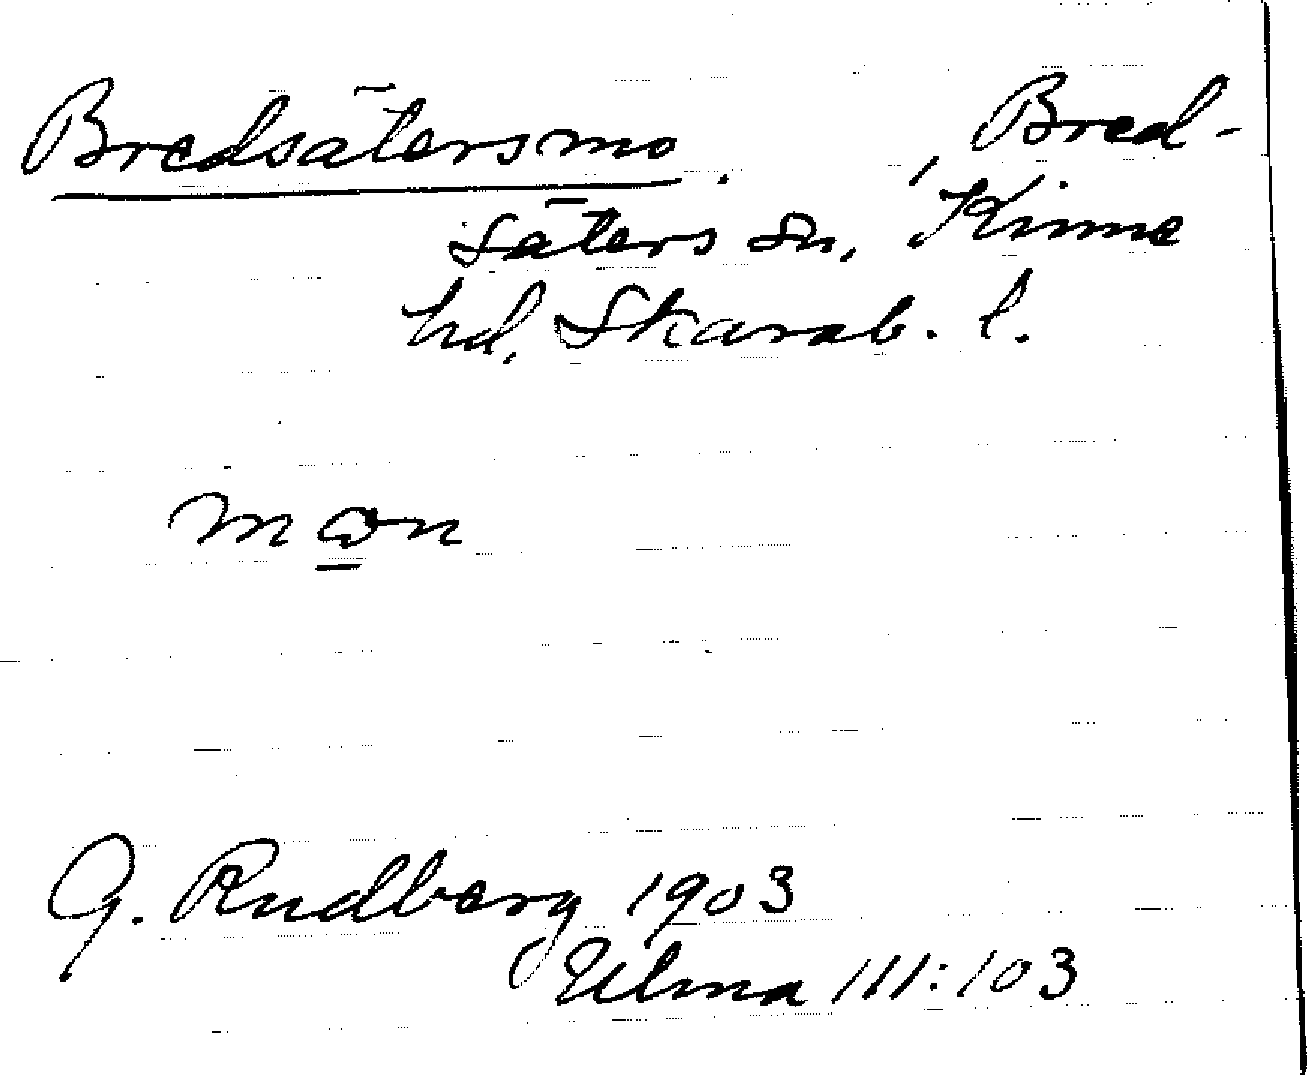 Bredsätersmo, Bred-
säters sn, Kinne
hd, Skarab. l.
G. Rudberg 1903
Ulma 111:103